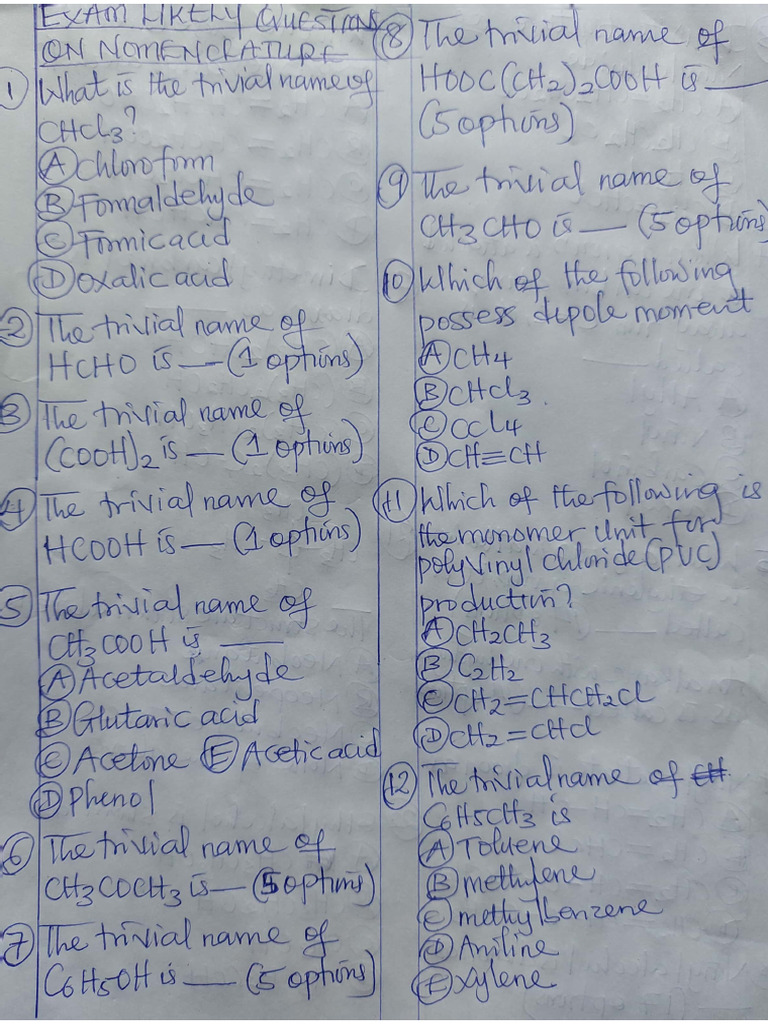 EXAM LIKELY QUESTIONS
ON NOMENCLATURE
① What is the trivial name of
CHCl3?
Ⓐ Chloroform
Ⓑ Formaldehyde
Ⓒ Formic acid
Ⓓ Oxalic acid
② The trivial name of
HCHO is — (1 options)
③ The trivial name of
(COOH)2 is — (1 options)
④ The trivial name of
HCOOH is — (1 options)
⑤ The trivial name of
CH3COOH is ——
Ⓐ Acetaldehyde
Ⓑ Glutaric acid
Ⓒ Acetone Ⓔ Acetic acid
Ⓓ Phenol
⑥ The trivial name of
CH3COCH3 is — (5 options)
⑦ The trivial name of
C6H5OH is — (5 options)
⑧ The trivial name of
HOOC(CH2)2COOH is —
(5 options)
⑨ The trivial name of
CH3CHO is — (5 options)
⑩ Which of the following
possess dipole moment
Ⓐ CH4
Ⓑ CHCl3.
Ⓒ CCl4
Ⓓ CH≡CH
⑪ Which of the following is
the monomer unit for
polyvinyl chloride (PVC)
production?
Ⓐ CH2CH3
Ⓑ C2H2
Ⓒ CH2=CHCH2Cl
Ⓓ CH2=CHCl
⑫ The trivial name of CH
C6H5CH3 is
Ⓐ Toluene
Ⓑ methylene
Ⓒ methylbenzene
Ⓓ Aniline
Ⓔ Xylene